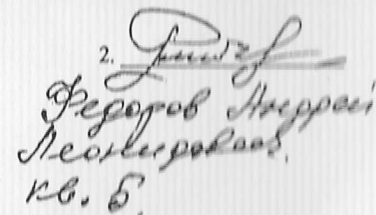 2.
Федоров Андрей
Леонидович
кв. 5